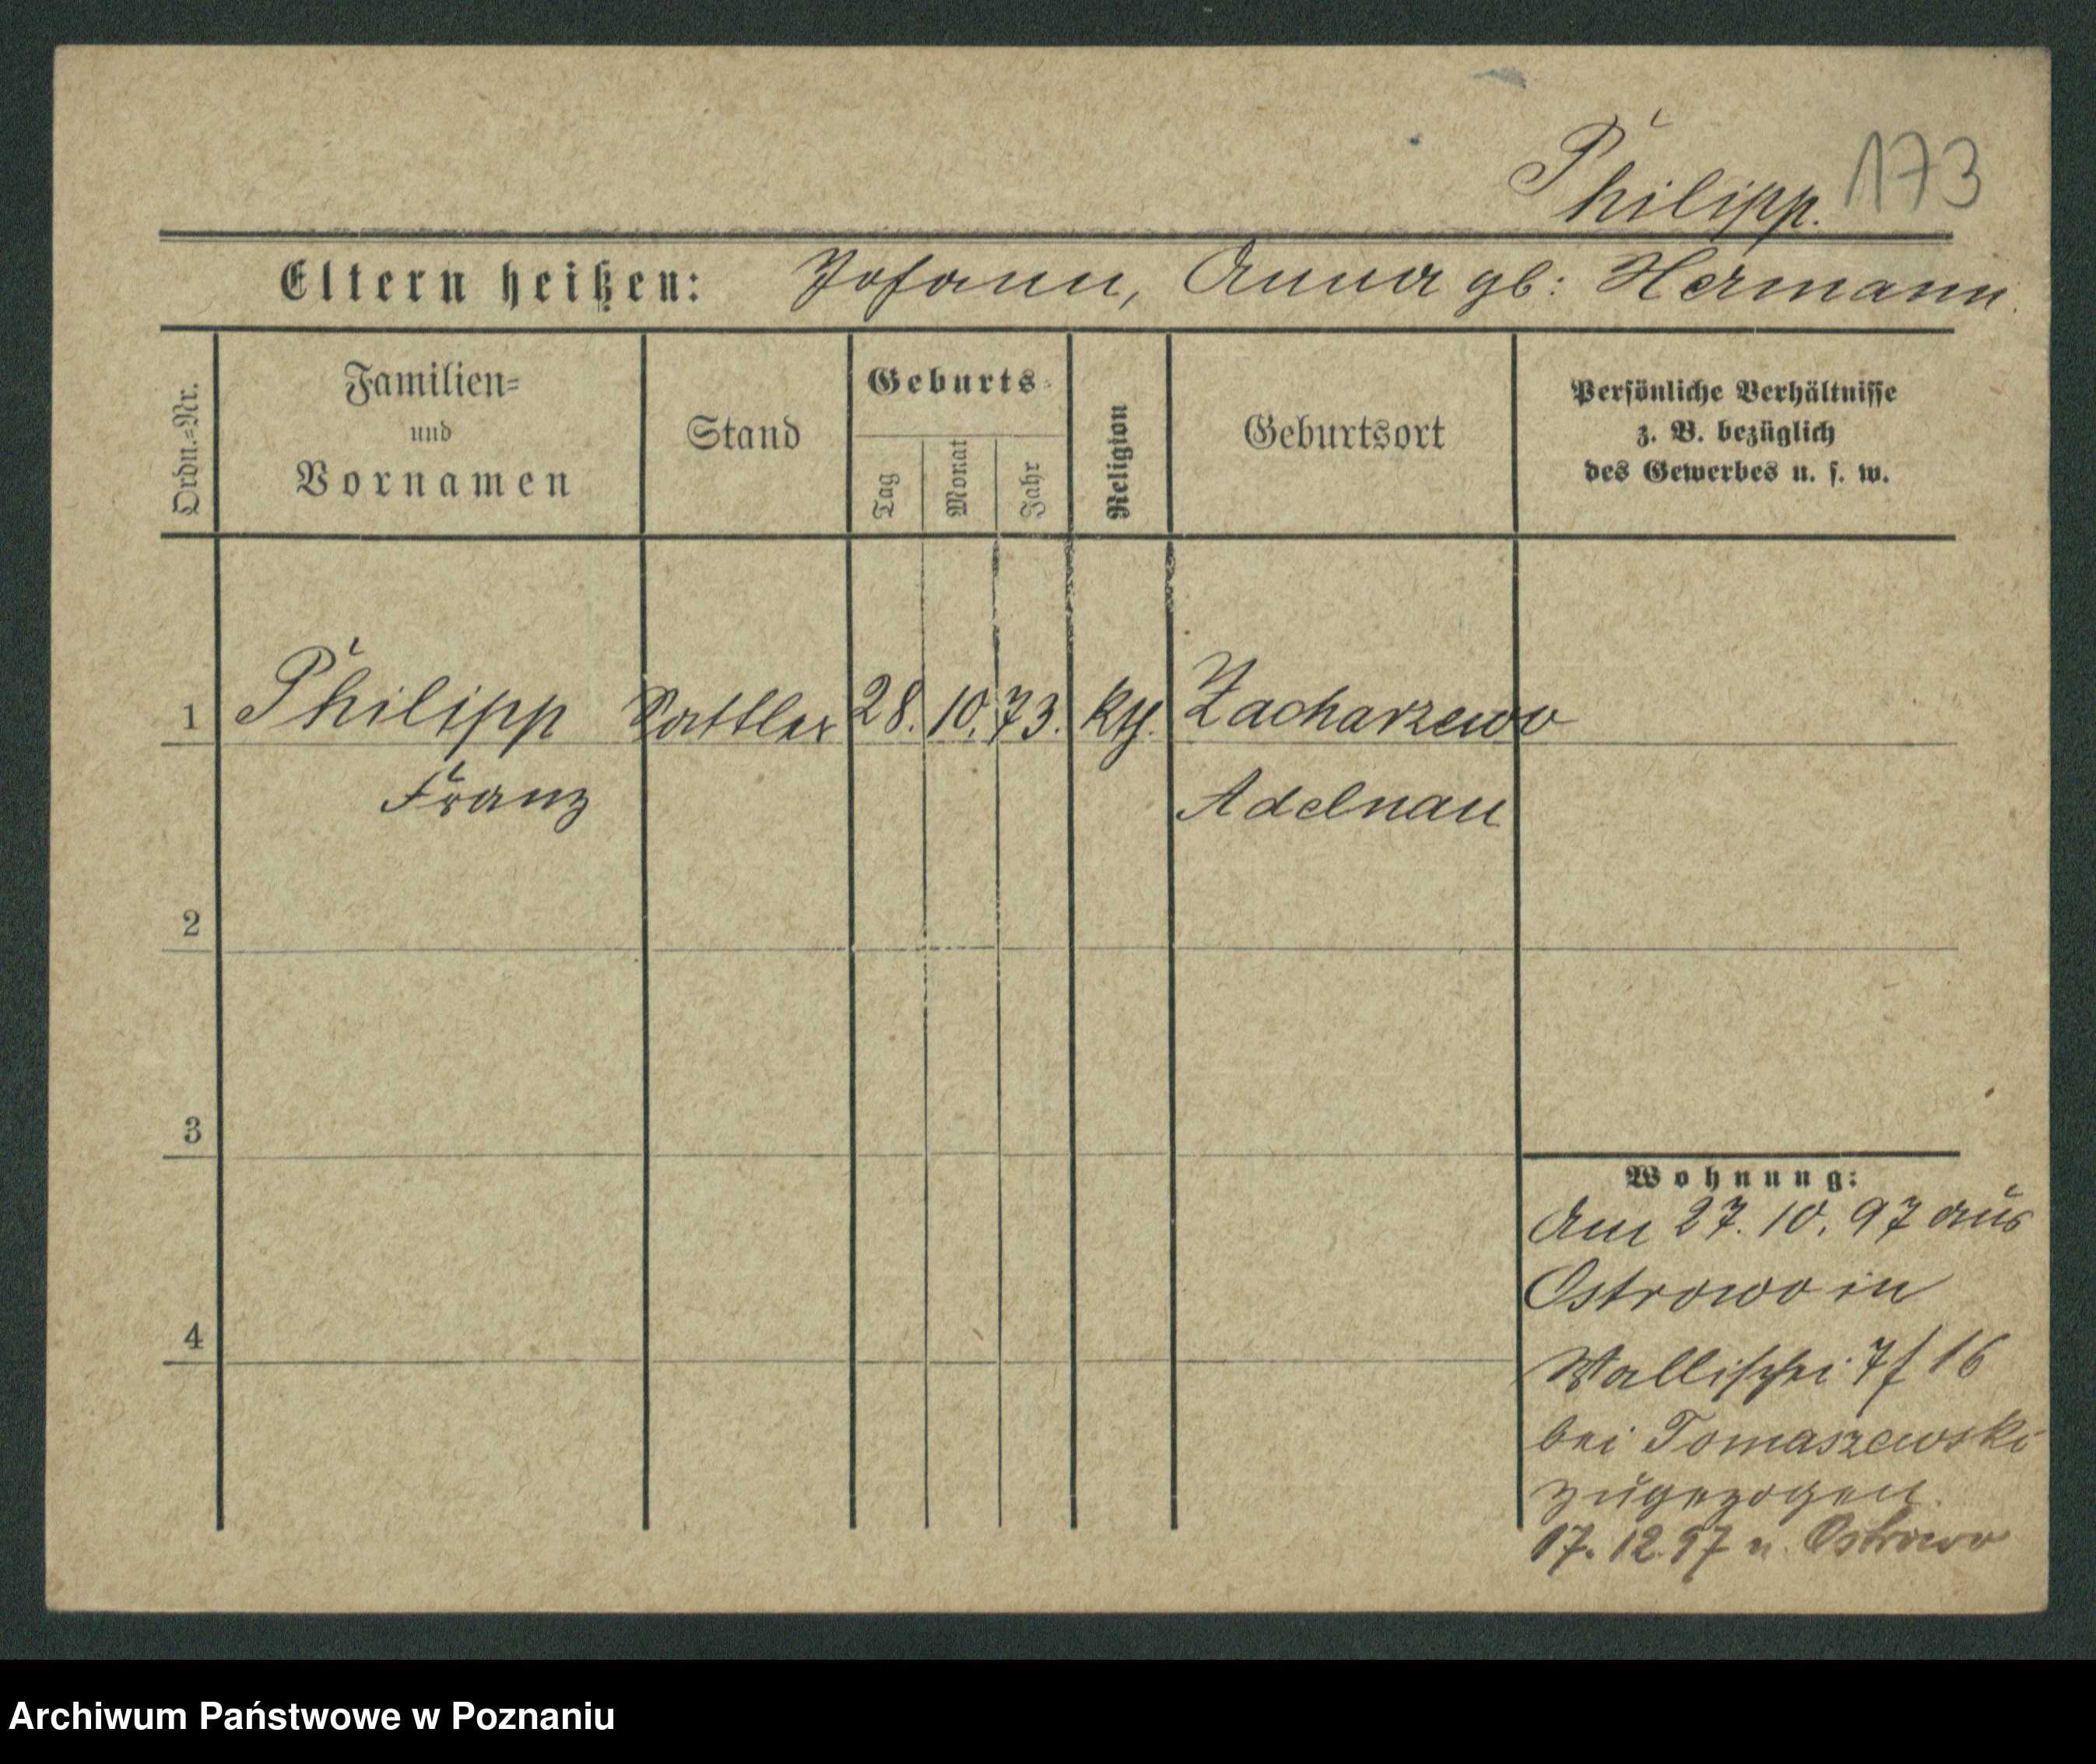 Philipp. 173
Eltern heißen: Johann, Anna gb: Hermann.
Ordn.=Nr.
Familien=
und
Vornamen
Stand
Geburts=
Tag
Monat
Jahr
Religion
Geburtsort
Persönliche Verhältnisse
z. B. bezüglich
des Gewerbes u. s. w.
1 Philipp Sattler 28. 10. 73. kth. Zacharzewo
Franz Adelnau
2
3
4
Wohnung:
Am 27. 10. 97 aus
Ostrowo in
Wallischei 7/16
bei Tomaszewski
zugezogen.
17. 12. 97 n. Ostrowo
Archiwum Państwowe w Poznaniu